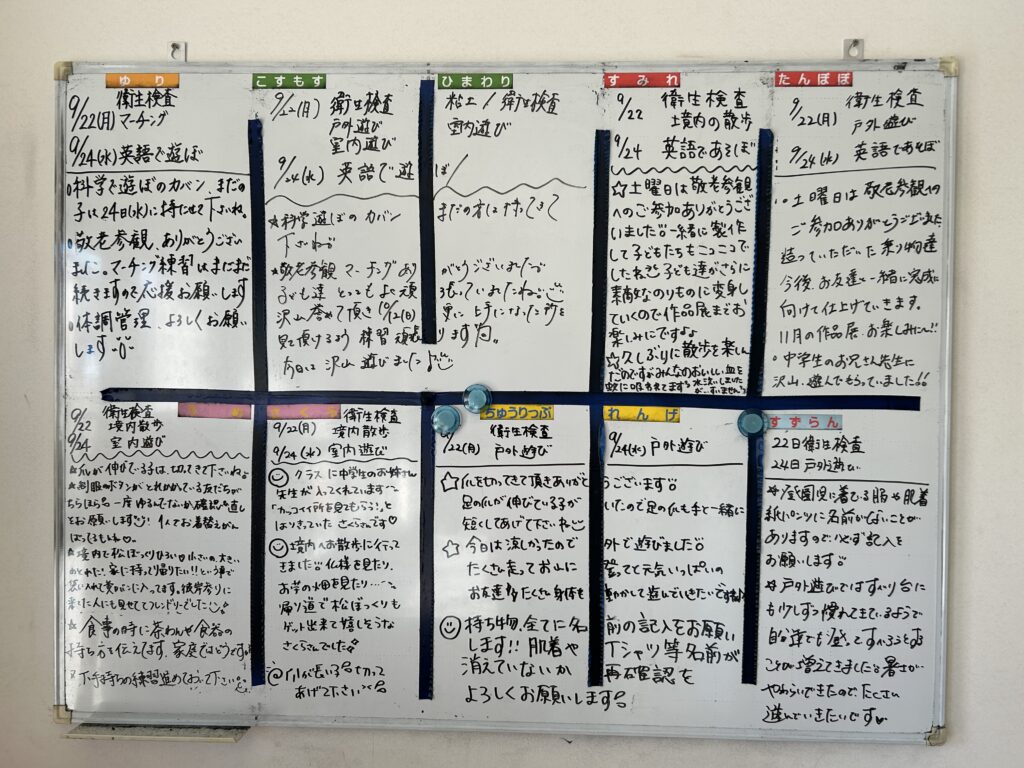 ゆり
衛生検査
9/22(月) マーチング
9/24(水)英語で遊ぼ
○科学で遊ぼのカバン、まだの
子は24日(水)に持たせて下さいね。
○敬老参観、ありがとうござい
ました。マーチング練習はまだまだ
続きますので応援お願いします
○体調管理、よろしくお願い
します
こすもす ひまわり
9/22(月) 衛生検査 粘土/衛生検査
戸外遊び 室内遊び
室内遊び
9/24(水) 英語で遊ば/
★科学遊ぼのカバン まだの方は持ってきて
下さいね
★敬老参観 マーチングありがとうございました
子ども達 とってもよく頑張っていましたね
沢山誉めて頂き 10/12(日) 更に上手になった所を
見て頂けるよう 練習頑張ります
今日は 沢山 遊びました
すみれ
9/22 衛生検査
境内の散歩
9/24 英語であそぼ
☆土曜日は敬老参観
へのご参加ありがとうござ
いました 一緒に製作
して子どもたちもニコニコで
したね 子ども達がさらに
素敵なのりものに変身し
ていくので作品展までお
楽しみにですよ
☆久しぶりに散歩を楽しん
だのですがみんなのおいしい血を
蚊に吸われてます 水洗いしました
が…すいません
たんぽぽ
衛生検査
9/22(月) 戸外遊び
9/24(水) 英語であそぼ
○土曜日は敬老参観への
ご参加ありがとうございました
造っていただいた乗り物達
今後、お友達と一緒に完成に
向けて仕上げていきます。
11月の作品展、お楽しみに!!
○中学生のお兄さん先生に
沢山、遊んでもらっていました!!
9/22 衛生検査
境内散歩
9/24 室内遊び
★爪が伸びている子は、切ってきて下さいねょ
★制服のボタンがとれかけている友だちが
ちらほら名 一度 ゆるんでないか確認や直し
をお願いします 1人でお着替えがん
ばってるもんね
★境内で松ぼっくりひろい 小さいの、大きい
のとれた! 家に持って帰りたい!!という事で
袋に入れて
来た人にも見せてフレンドリーでした
★食事の時に茶わんや食器の
持ち方を伝えてます、家庭ではどうですか
※下手持ちの練習進めておいて下さい。
さくら
9/22(月) 衛生検査
境内散歩
9/24(水) 室内遊び
クラスに中学生のお姉さん
先生が入ってくれています
「カッコイイ所を見てもらう!」と
はりきっていた さくらさんです♡
境内へお散歩に行って
きました 仏様を見たり、
お芋の畑を見たり…
帰り道で松ぼっくりも
ゲット出来て嬉しそうな
さくらさんでした
爪が長い子も切って
あげて下さい
ちゅうりっぷ れんげ
衛生検査
9/22(月) 戸外遊び 9/24(水) 戸外遊び
☆爪を切ってきて頂きありがとうございます
足の爪が伸びている子がいたので足の爪も手と一緒に
短くしてあげて下さいね
☆今日は涼しかったので外で遊びました
たくさん走ってお山に登ってと元気いっぱいの
お友達 たくさん身体を動かして遊んでいきたいですね
持ち物全てに名前の記入をお願い
します!! 肌着やTシャツ等名前が
消えていないか再確認を
よろしくお願いします
すずらん
22日衛生検査
24日戸外遊び
★全園児に着むる服や肌着
紙パンツに名前がないことが
ありますので必ず記入を
お願いします
★戸外遊びではすべり台に
も少しずつ慣れてきているようで
自分達でも登ってすべろうとする
ことが増えてきました 暑さが
やわらいできたので、たくさん
遊んでいきたいです